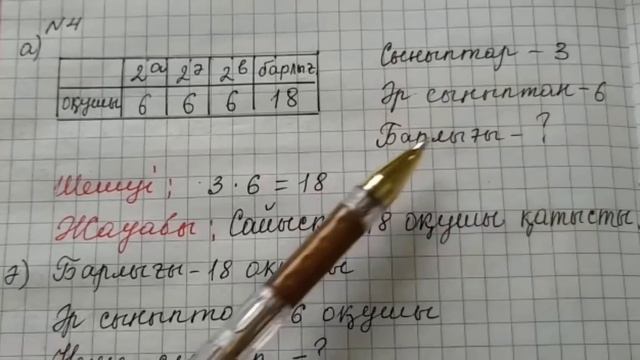 N4
а)
2а 2ә 2в барлығ
оқушы 6 6 6 18
Сыныптар – 3
Әр сыныптан – 6
Барлығы – ?
Шешуі; 3 · 6 = 18
Жауабы; 8 оқушы қатысты
ә) Барлығы – 18
Әр сыныпто 6 оқушы
– ?